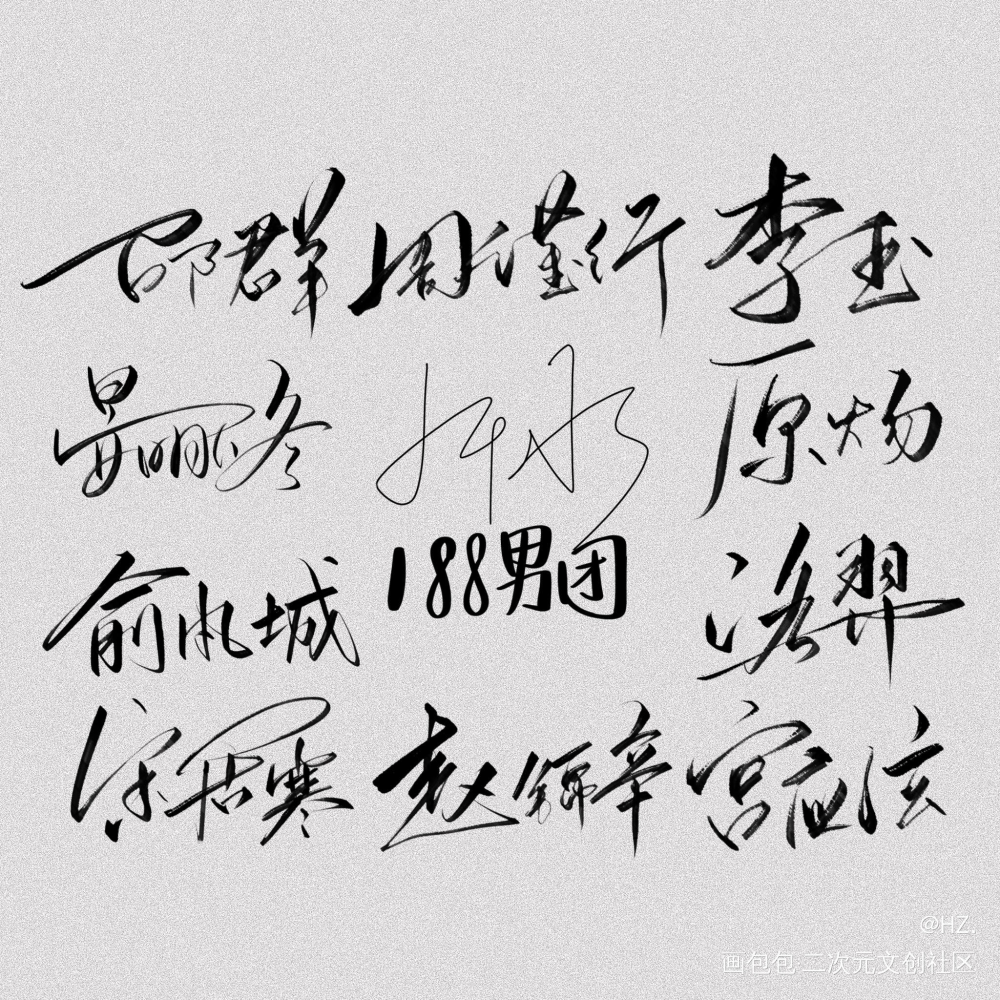 邵群 周谨行 李玉
晏明修 原炀
188男团
俞风城 洛羿
宋居寒 赵锦辛 宫应弦
@HZ.
画包包·二次元文创社区